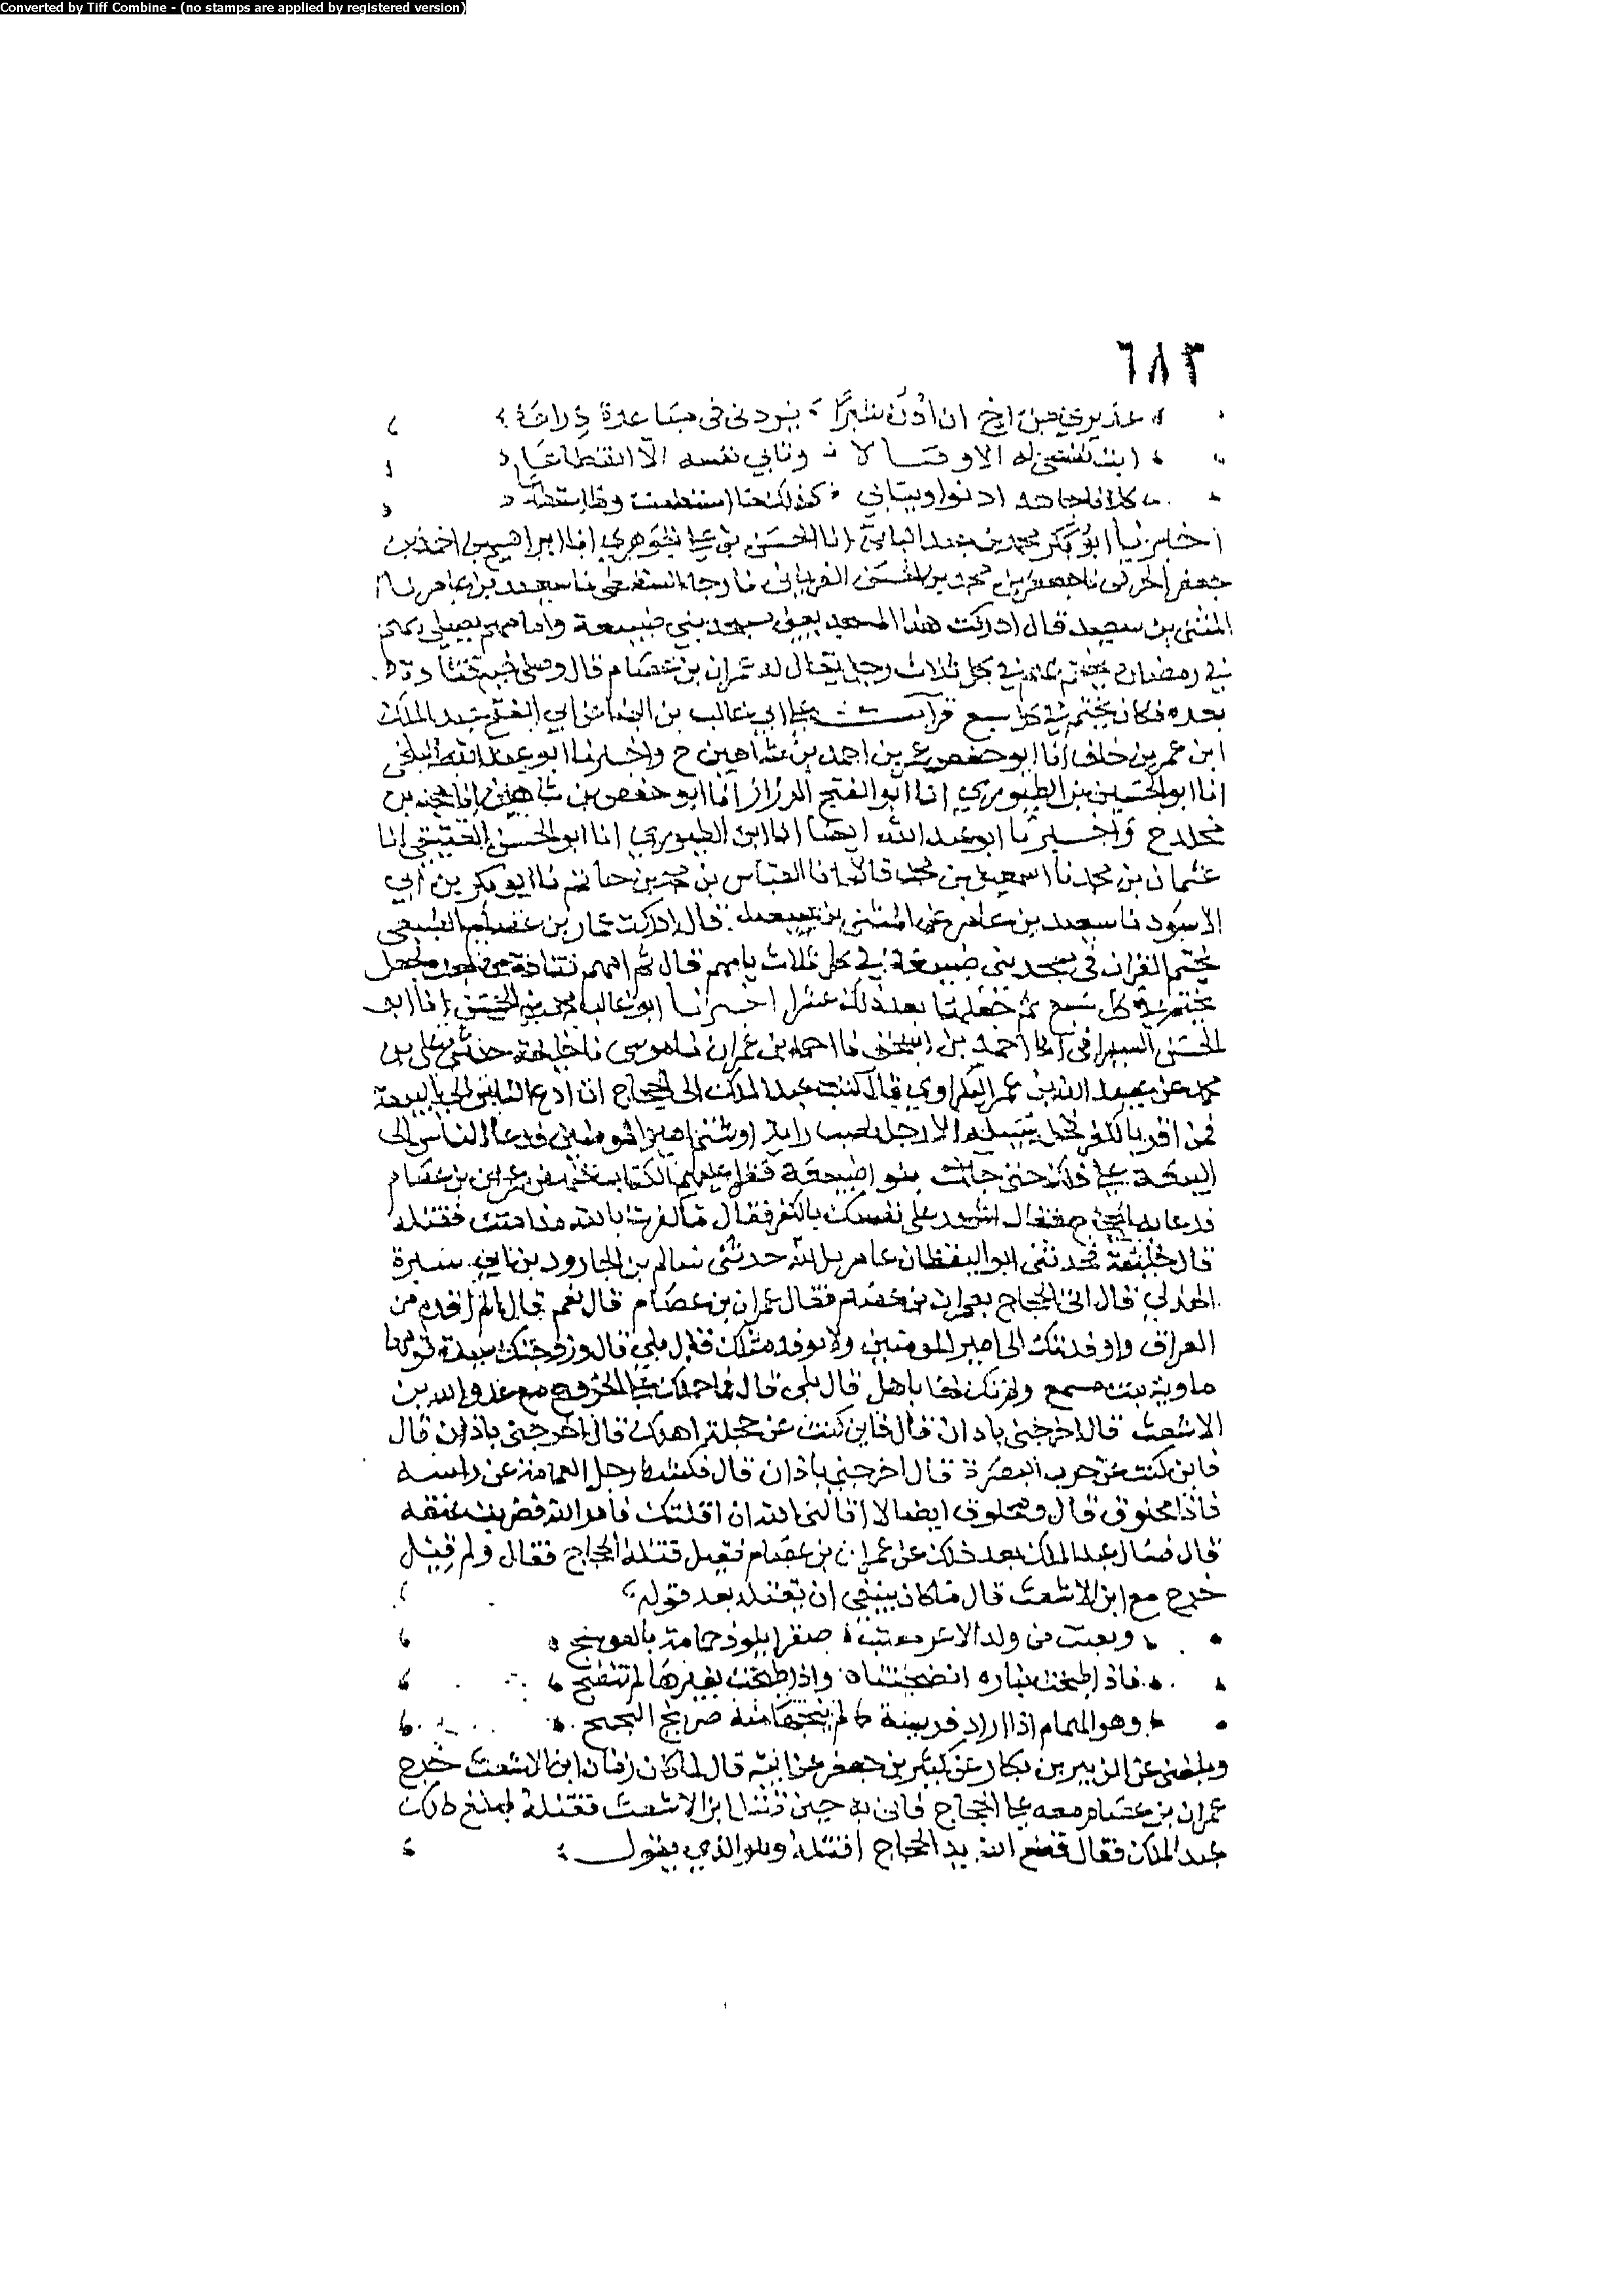 Converted by Tiff Combine - (no stamps are applied by registered version)
٦٨٣
عذيري من اخ ان ادن شبرا يزدني في مباعدة ذراعا
ابت نفسي له الا وصالا وتابي نفسه الا انقطاعا
كلانا جاهد ادنوا ويناي كذلك ما استطعت وما استطاعا
اخبرنا ابو بكر محمد بن عبد الباقي انا الحسن بن علي الجوهري انا ابراهيم بن احمد بن
جعفر الخرقي نا جعفر بن محمد بن الحسن الفريابي نا رجا السقطي نا سعيد بن عامر نا
المثنى بن سعيد قال ادركت هذا المسجد يعني مسجد بني ضبيعة وامامهم يصلي بهم
في رمضان يختم بهم في كل ثلاث رجل يقال له عمران بن عصام قال وصلى فيه قتادة
بعده فكان يختم في كل سبع قرات على ابي غالب بن البنا عن ابي الفتح عبد الملك
ابن عمر بن خلف انا ابو حفص عمر بن احمد بن شاهين ح واخبرنا ابو عبد الله البلخي
انا ابو الحسين بن الطيوري انا ابو الفتح الرزاز انا ابو حفص بن شاهين انا محمد بن
مخلد ح واخبرنا ابو عبد الله ايضا انا ابن الطيوري انا ابو الحسن العتيقي انا
عثمان بن محمد نا اسمعيل بن محمد قالا نا العباس بن محمد بن حاتم نا ابو بكر بن ابي
الاسود نا سعيد بن عامر عن المثنى بن سعيد قال ادركت عمران بن عصام الضبعي
يختم القران في مسجد بني ضبيعة في كل ثلاث يامهم قال ثم امهم قتادة من بعد فجعل
يختم في كل سبع ثم جعلها بعد ذلك عشرا اخبرنا ابو غالب محمد بن الحسن انا ابو
الحسن السيرافي انا احمد بن اسحق نا احمد بن عمران نا موسى نا خليفة حدثني علي بن
محمد عن عبد الله بن عمر البكراوي قال كتب عبد الملك الى الحجاج ان ادع الناس الى البيعة
فمن اقر بالكفر فخل سبيله الا رجل نصب راية او شتم امير المومنين فدعا الناس الى
البيعة على ذلك حتى جات بنو ضبيعة فقرا عليهم الكتاب فنهض عمران بن عصام
فدعا به الحجاج فقال اشهد على نفسك بالكفر فقال ما كفرت بالله منذ امنت فقتله
قال خليفة فحدثني ابو اليقظان عامر حدثني سالم بن الجارود بن ابي سبرة
الهذلي قال اتي الحجاج بعمران بن عصام فقال عمران بن عصام قال نعم قال الم اقدم من
العراق واوفدتك الى امير المومنين ولا يوفد مثلك قال بلى قال وزوجتك سيدة قومها
ماوية بنت مسمع ولم تكن لها باهل قال بلى قال فما حملك على الخروج مع عدو الله بن
الاشعث قال اخرجني باذان قال فاين كنت عن حجلة اهلك قال اخرجني باذان قال
فاين كنت عن حرب البصرة قال اخرجني باذان قال فكشط رجل العمامة عن راسه
فاذا محلوق قال ومحلوق ايضا لا اقالني الله ان اقلتك فامر به فضربت عنقه
قال فسال عبد الملك بعد ذلك عن عمران بن عصام فقيل قتله الحجاج فقال ولم قيل
خرج مع ابن الاشعث قال ما كان ينبغي ان يقتله بعد قوله
وبعثت من ولد الاغر معتب صقرا يلوذ حمامه بالعوسج
فاذا طبخت بناره انضجتها واذا طبخت بغيرها لم تنضج
وهو الهمام اذا اراد فريسة لم ينجها منه صريخ
وبلغني عن الزبير بن بكار عن كثير بن جعفر عن ابيه قال لما كان زمان ابن الاشعث خرج
عمران بن عصام معه على الحجاج فاتي به حين قتل ابن الاشعث فقتله فبلغ ذلك
عبد الملك فقال قطع الله يد الحجاج اقتله وهو الذي يقول